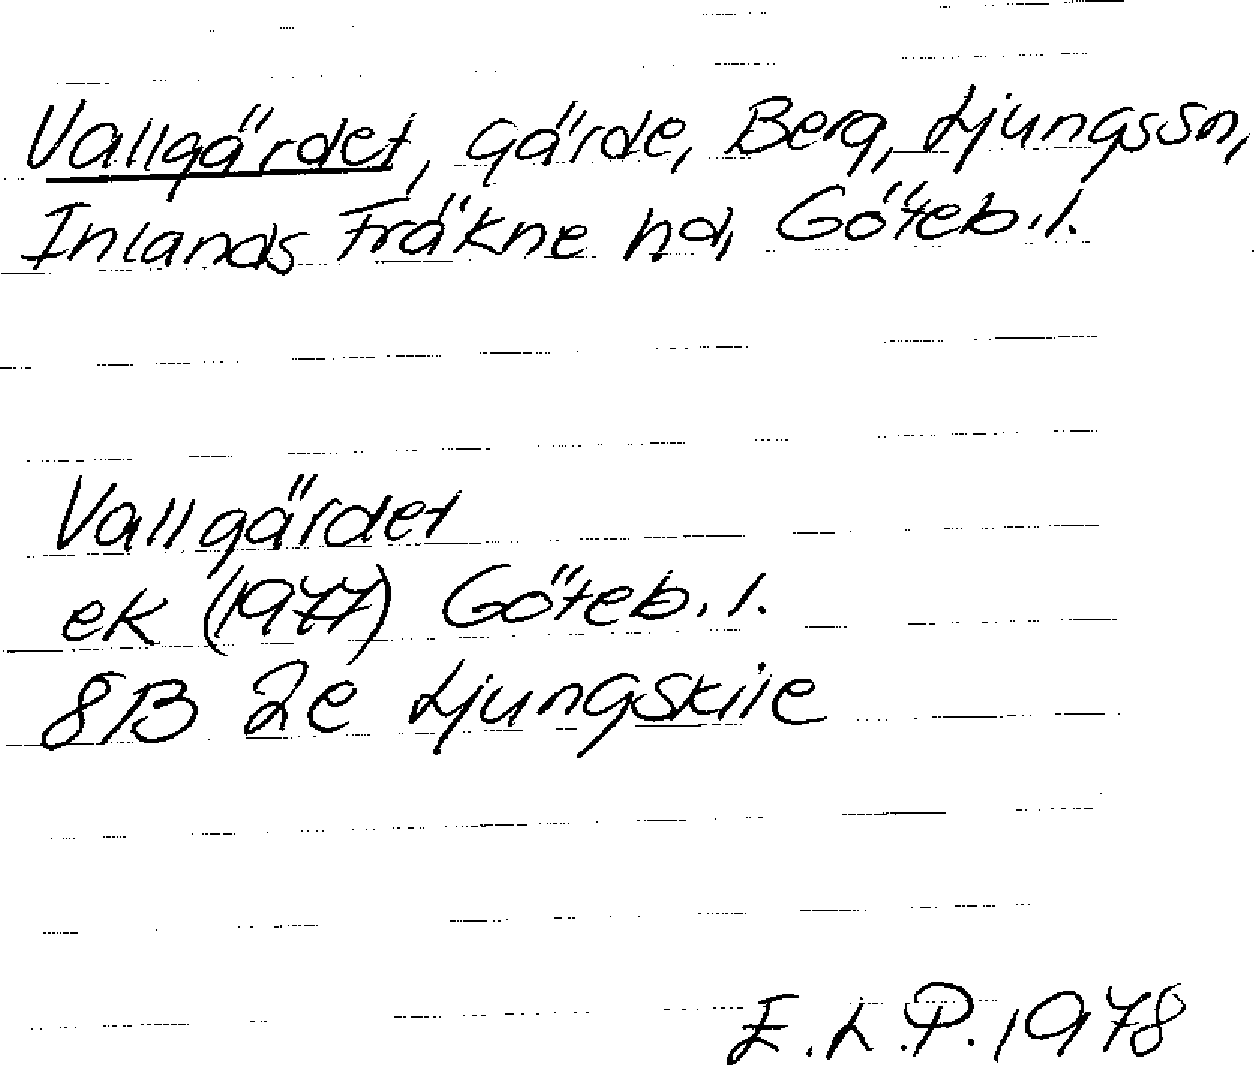 Vallgärdet, gärde, Berg, Ljungssn,
Inlands Fräkne hd, Göteb. l.
Vallgärdet
ek (1977) Göteb. l.
8B 2e Ljungskile
E.L.P. 1978